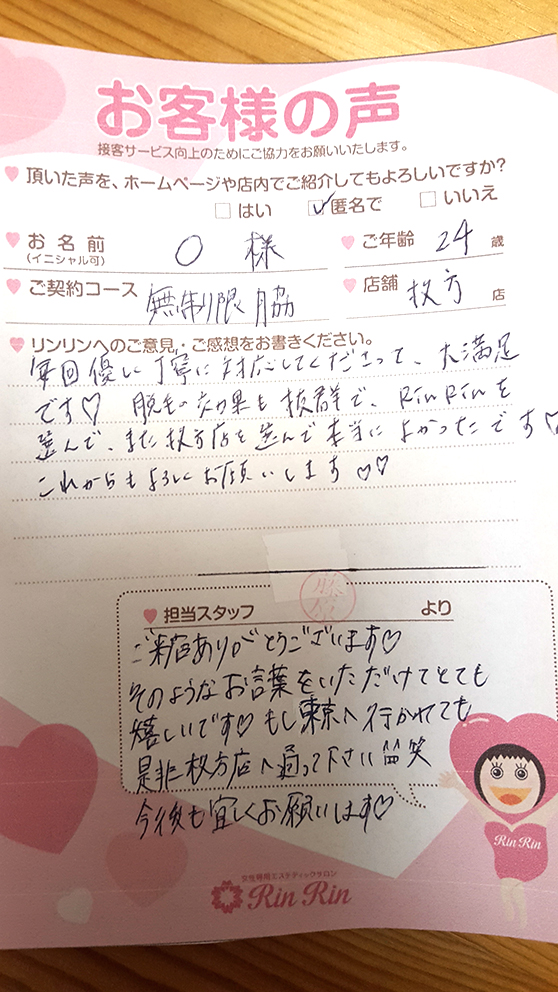 お客様の声
接客サービス向上のためにご協力をお願いいたします。
頂いた声を、ホームページや店内でご紹介してもよろしいですか?
はい 匿名で いいえ
お名前 O 様 ご年齢 24 歳
(イニシャル可)
ご契約コース 無制限 脇 店舗 枚方 店
リンリンへのご意見・ご感想をお書きください。
毎回優しく丁寧に対応してくださって、大満足
です♡ 脱毛の効果も抜群で、RinRinを
選んで、また枚方店を選んで本当によかったです♡
これからもよろしくお願いします♡♡
担当スタッフ 藤原 より
ご来店ありがとうございます♡
そのようなお言葉をいただけてとても
嬉しいです♡もし東京へ行かれても
是非枚方店へ通って下さい笑
今後も宜しくお願いします♡
Rin Rin
女性専用エステティックサロン
Rin Rin